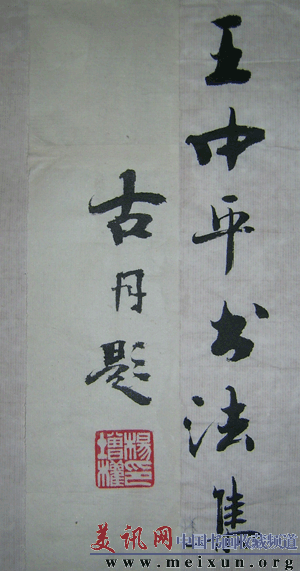 王中平书法集
古月题
杨增权印
美讯网 中国书画收藏频道
www.meixun.org